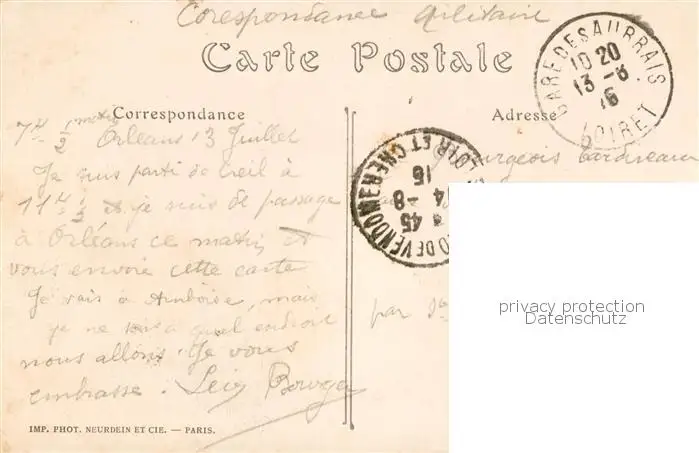 Corespondance Militaire
Carte Postale
Correspondance
Adresse
GARE DES AUBRAIS
10 20
13 -8
16
LOIRET
7H 1/2 matin
Orléans 13 Juillet
Je suis parti de Creil à
11H 1/2 et je suis de passage
à Orléans ce matin et
vous envoie cette carte
Je vais à Amboise, mais
je ne sais à quel endroit
nous allons. Je vous
embrasse.
Bourgeois
par
DE VENDOME
LOIR ET CHER
45
4 -8
16
privacy protection
Datenschutz
IMP. PHOT. NEURDEIN ET CIE. — PARIS.